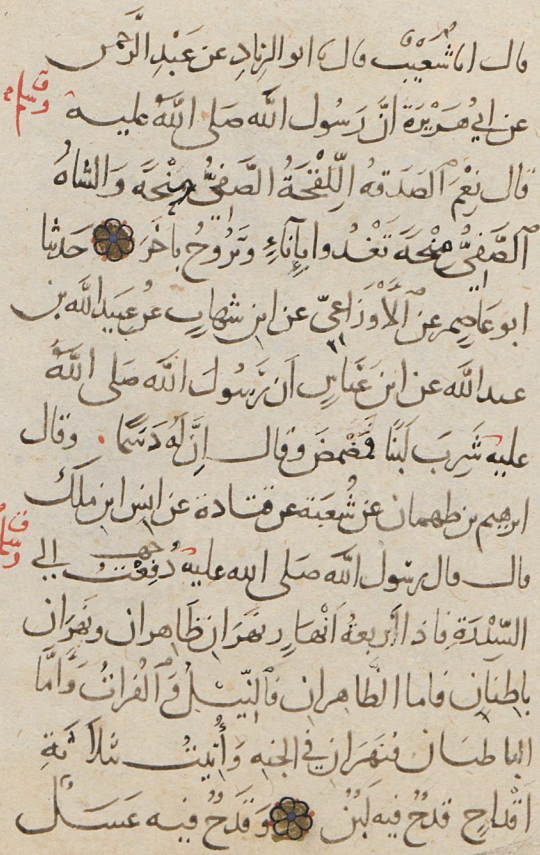 قال انا شُعَيْبٌ قال نا ابو الزِنادِ عن عَبْدِ الرَّحمن
عن ابي هُرَيْرَةَ انَّ رَسُول الله صَلى اللهُ عليه وسلم
قال نِعْمَ الصَدَقة اللِّقْحَةُ الصَّفِيُّ مِنْحَة وَالشاةُ
الصَّفِيُّ مِنْحَةً تَغْدُوا بِإِنَاءٍ وتَرُوحُ بآخَرَ حَدثنا
ابو عَاصِم عن الأَوْزَاعِيّ عن ابن شهاب عن عبيد الله بن
عبد الله عن ابن عَبّاسٍ ان رَسُولَ الله صَلى اللهُ
عليه شَرِبَ لَبَنًا فمَضْمَضَ وقال إِنَّ لَهُ دَسَمًا وقال
ابرهيم بن طهمان عن شُعبَة عن قتادة عن انس ابن ملك
قال قال رسول الله صَلى الله عليه دُفِعْتُ إلى
السِّدْرَةِ فاذا أربعةُ أَنْهار نَهَرَانِ ظَاهِران ونَهَرَانِ
باطِنَانِ فاما الظَّاهِران فالنِّيلُ وَالْفُراتُ وَأمَّا
الباطنان فنَهَرَانِ في الجنه وَأُتِيتُ بثلاثةِ
أَقْداحٍ قدحٌ فيه لَبَنٌ وقَدَحٌ فيه عَسَلٌ